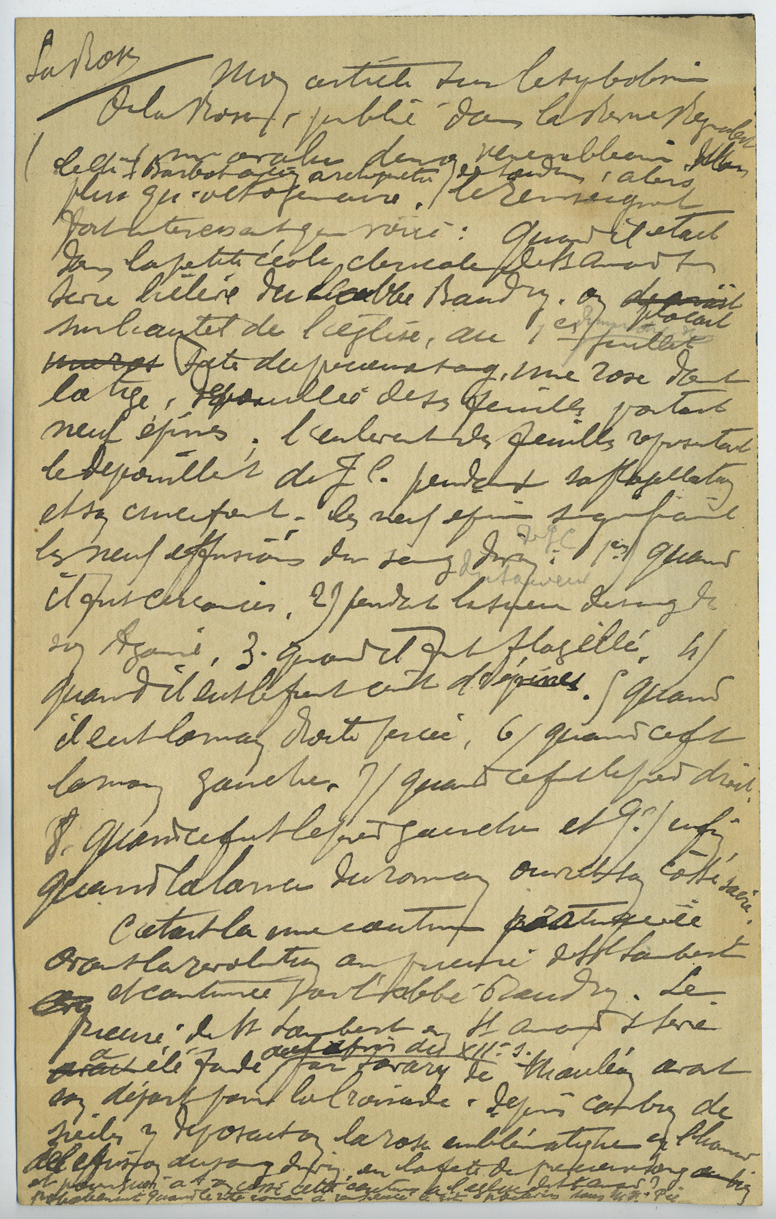 La Rose
Mon article sur le symbolisme
de la Rose, publié dans la Revue
m'a valu d'un vénérable ami,
Barbot architecte
plus qu'octogénaire, le renseignement
fort intéressant que voici : Quand il était
dans la petite école cléricale de St Amand sur
Sèvre dirigée par l'abbé Baudry, on plaçait
sur l'autel de l'église, au 1er juillet
fête du précieux sang, une rose dont
la tige, dépouillée de ses feuilles portait
neuf épines ; l'enlèvement des feuilles représentait
le dépouillement de J. C. pendant sa flagellation
et son crucifiement. Les neuf épines signifiaient
les neuf effusions du sang divin : 1er) quand
de J C
du Sauveur
il fut circoncis, 2) pendant la sueur de sang de
son Agonie, 3. quand il fut flagellé, 4/
quand il eut le front ceint d'épines. 5 quand
il eut la main droite percée, 6/ quand ce fut
la main gauche. 7/ quand ce fut le pied droit.
8. quand ce fut le pied gauche et 9.) enfin
quand la lance du romain ouvrit son côté sacré.
C'était là une coutume pratiquée
avant la révolution au prieuré de St Lambert
et continuée par l'abbé Baudry. Le
prieuré de St Lambert en St Amand s/ Sèvre
a été fondé par Savary de Mauléon avant
au XIIe s.
son départ pour la Croisade. Depuis combien de
siècles y déposait-on la rose emblématique en l'honneur
de l'effusion du sang divin en la fête du précieux sang
et pourquoi a-t-on cessé cette coutume à l'église de St Amand ?
probablement quand le rite romain a remplacé le rite